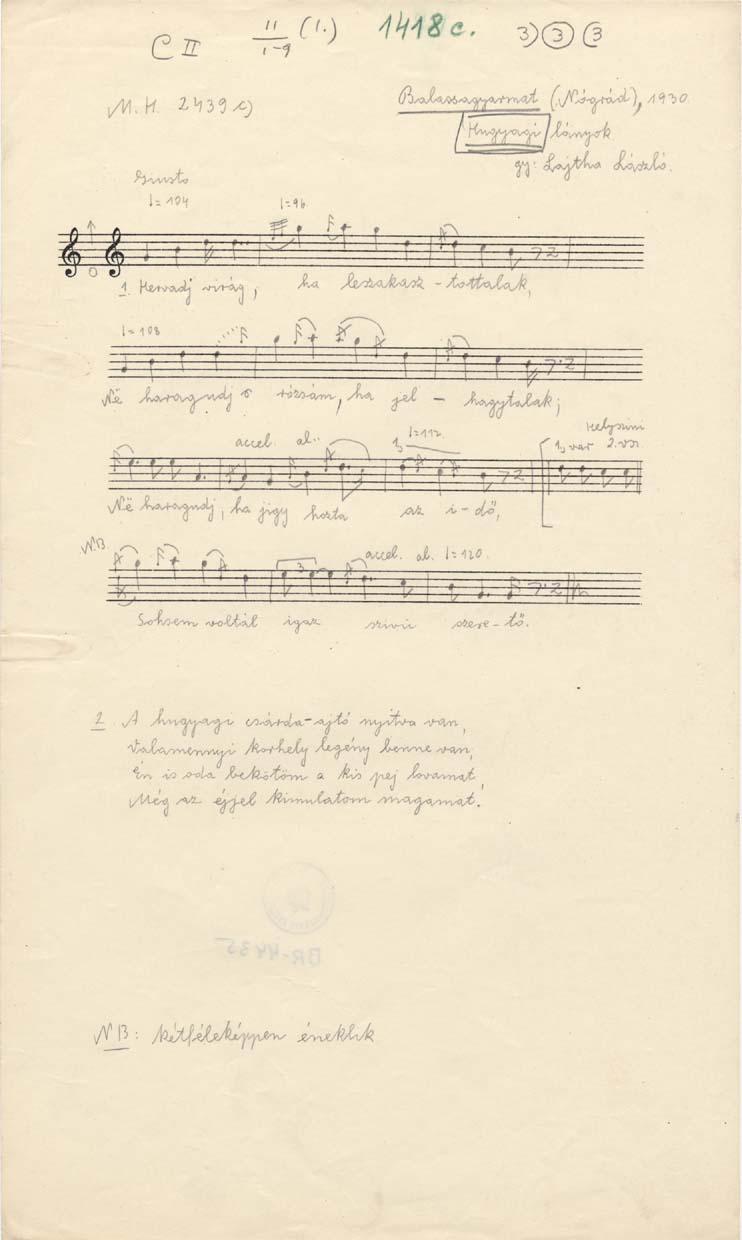 C II 11/1-9 (1.) 1418 c. 3) (3) (3
M.H. 2439 c)
Balassagyarmat (Nógrád), 1930.
Hugyagi lányok
gy: Lajtha László.
Giusto
♩= 104 ♩=96
1. Hervadj virág, ha leszakasz-tottalak,
♩= 108
Në haragudj rózsám, ha jel - hagytalak;
accel. al.. 1, ♩=112. Helyszini
1, var 2. vsz.
Në haragudj, ha jigy hozta az i-dő,
N.B. accel. al. ♩= 120.
3
Sohsem voltál igaz szivü szere-tő.
2. A hugyagi csárda-ajtó nyitva van,
Valamennyi korhely legény benne van,
Én is oda bekötöm a kis pej lovamat,
Még az éjjel kimulatom magamat.
BR-4435
NB: kétféleképpen éneklik